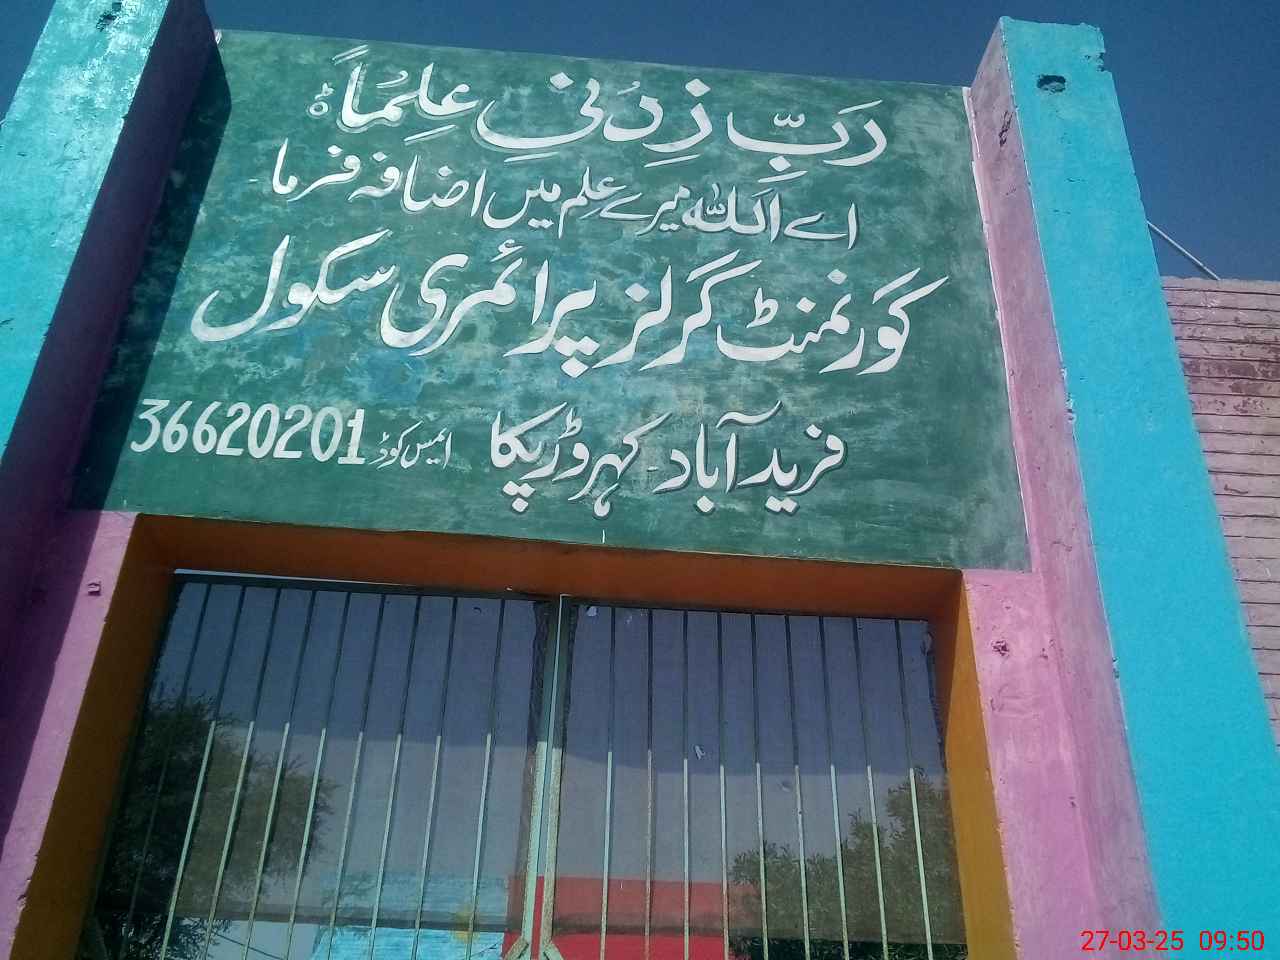 رَبِّ زِدْنِی عِلْمًا ہ
اے اللہ میرے علم میں اضافہ فرما
گورنمنٹ گرلز پرائمری سکول
فرید آباد - کہروڑپکا ایمس کوڈ 36620201
27-03-25 09:50